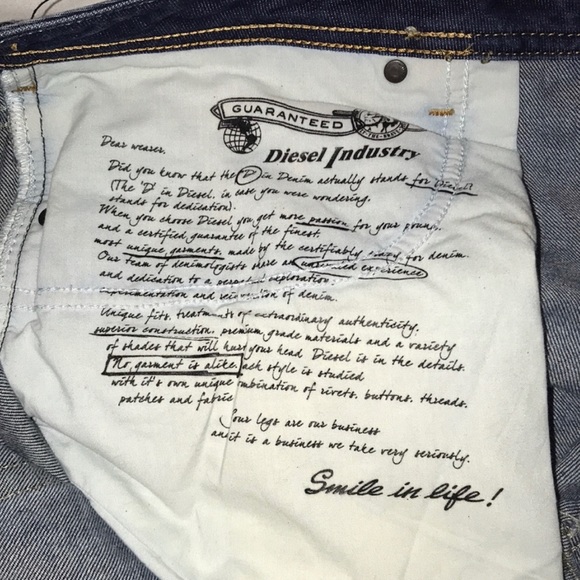 GUARANTEED
Diesel Industry
Dear wearer,
Did you know that the 'D' in Denim actually stands for Diesel?
(The 'D' in Diesel, in case you were wondering,
stands for dedication).
When you choose Diesel you get more passion for your pound,
and a certified guarantee of the finest,
most unique garments, made by the certifiably crazy for denim.
Our team of denimologists share an experience
and dedication to a perpetual exploration,
experimentation and of denim.
Unique fits, treatments of extraordinary authenticity,
superior construction, premium grade materials and a variety
of shades that will hurt your head Diesel is in the details.
No garment is alike, each style is studied
with it's own unique combination of rivets, buttons, threads,
patches and fabric
Your legs are our business
and it is a business we take very seriously.
Smile in life!